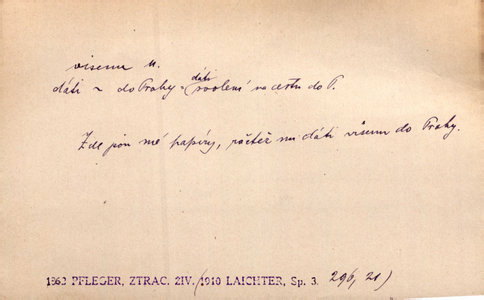 visum n.
dáti ~ do Prahy = (dáti svolení na cestu do P.
Zde jsou mé papíry, račtež mi dáti visum do Prahy.
1863 PFLEGER, ZTRAC. ŽIV. (1910 LAICHTER, Sp. 3. 296, 21)